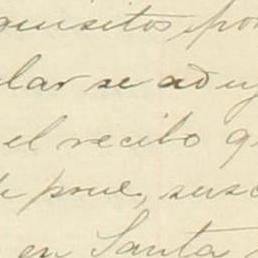 quisitos por
lar se aduj
el recibo q
pone, susc
en Santa